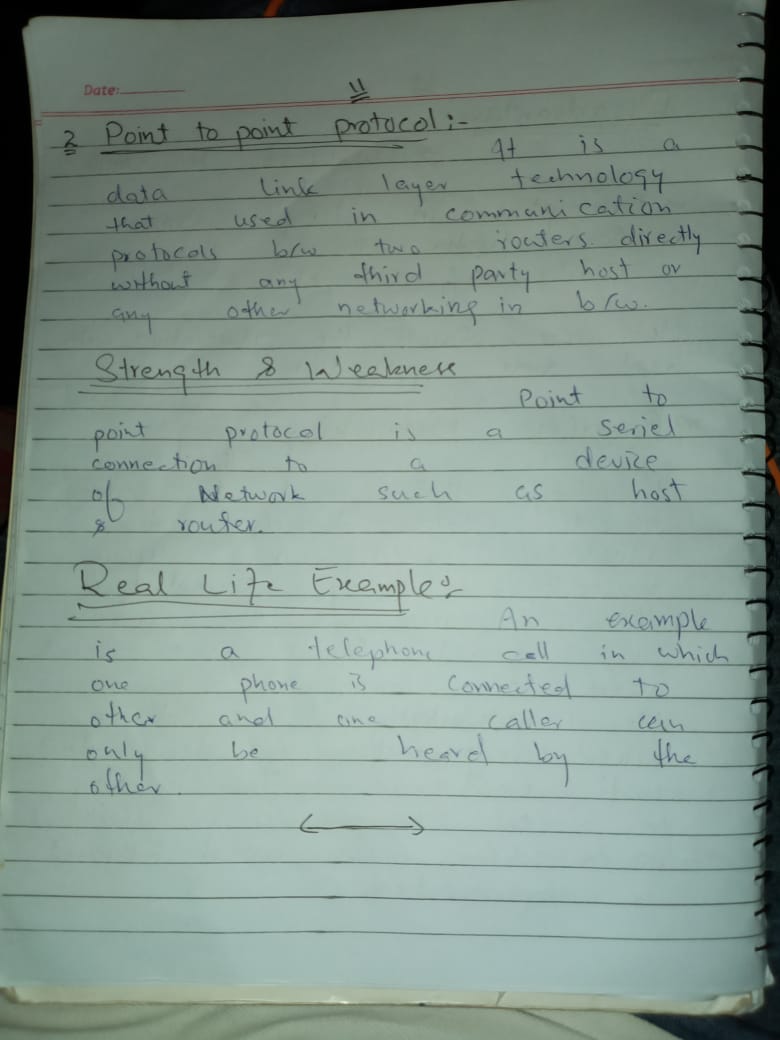 Date:
11
2 Point to point protocol:-
It is a
data link layer technology
that used in communication
protocols b/w two routers directly
without any third party host or
any other networking in b/w.
Strength & Weakness
Point to
point protocol is a seriel
connection to a device
of Network such as host
& router.
Real Life Example:
An example
is a telephone call in which
one phone is connected to
other and one caller can
only be heard by the
other.